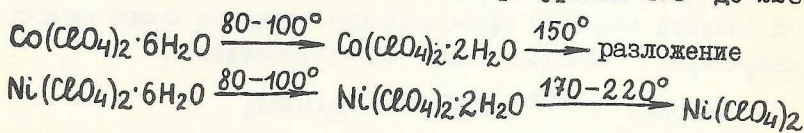 Co(ClO₄)₂·6H₂O 80-100° → Co(ClO₄)₂·2H₂O 150° → разложение
Ni(ClO₄)₂·6H₂O 80-100° → Ni(ClO₄)₂·2H₂O 170-220° → Ni(ClO₄)₂